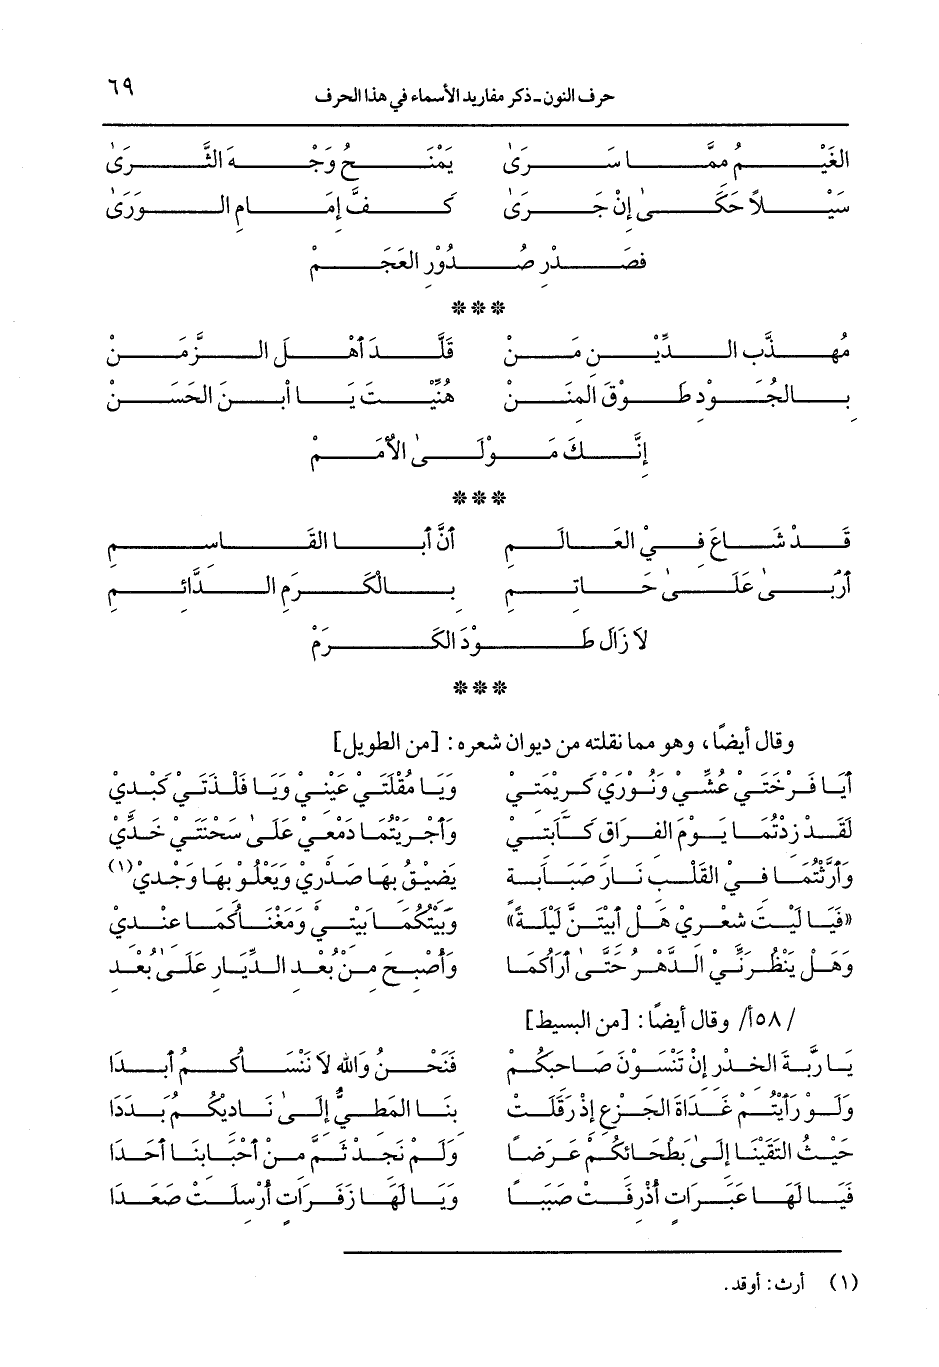 حرف النون - ذكر مفاريد الأسماء في هذا الحرف ٦٩
الغَيْمُ مِمَّا سَرَىٰ يَمْنَحُ وَجْهَ الثَّرَىٰ
سَيْلاً حَكَىٰ إِنْ جَرَىٰ كَفَّ إِمَامِ الوَرَىٰ
فصَدْرِ صُدُوْرِ العَجَمْ
***
مُهذَّب الدِّيْنِ مَنْ قَلَّدَ أَهْلَ الزَّمَنْ
بِالجُوْدِ طَوْقَ المِنَنْ هُنِّيْتَ يَا أبْنَ الحَسَنْ
إِنَّكَ مَوْلَىٰ الأُمَمْ
***
قَدْ شَاعَ فِيْ العَالَمِ أَنَّ أَبَا القَاسِمِ
أَرْبَىٰ عَلَىٰ حَاتِمِ بِالْكَرَمِ الدَّائِمِ
لاَ زَالَ طَوْدَ الكَرَمْ
***
وقال أيضًا، وهو مما نقلته من ديوان شعره: [من الطويل]
أَيَا فَرْخَتَيْ عُشِّي وَنُوْرَيْ كَرِيْمَتِيْ وَيَا مُقْلَتَيْ عَيْنِيْ وَيَا فَلْذَتَيْ كَبْدِيْ
لَقَدْ زِدْتُمَا يَوْمَ الفِرَاقِ كَآبَتِيْ وَأَجْرَيْتُمَا دَمْعِيْ عَلَىٰ سَحْنَتَيْ خَدِّيْ
وَأَرَّثْتُمَا فِيْ القَلْبِ نَارَ صَبَابَةٍ يَضِيْقُ بِهَا صَدْرِيْ وَيَعْلُوْ بِهَا وَجْدِيْ(١)
«فَيَا لَيْتَ شِعْرِيْ هَلْ أَبِيْتَنَّ لَيْلَةً» وَبَيْتُكُمَا بَيْتِيْ وَمَغْنَاكُمَا عِنْدِيْ
وَهَلْ يَنْظُرَنِّيْ الدَّهْرُ حَتَّىٰ أَرَاكُمَا وَأُصْبِحَ مِنْ بُعْدِ الدِّيَارِ عَلَىٰ بُعْدِ
/٥٨أ/ وقال أيضًا: [من البسيط]
يَا رَبَّةَ الخِدْرِ إِنْ تَنْسَوْنَ صَاحِبَكُمْ فَنَحْنُ وَاللهِ لاَ نَنْسَاكُمُ أَبَدَا
وَلَوْ رَأَيْتُمْ غَدَاةَ الجَزْعِ إِذْ رَقَلَتْ بِنَا المَطِيُّ إِلَىٰ نَادِيْكُمُ بَدَدَا
حَيْثُ التَقَيْنَا إِلَىٰ بَطْحَائِكُمْ عَرَضًا وَلَمْ نَجِدْ ثَمَّ مِنْ أَحْبَابِنَا أَحَدَا
فَيَا لَهَا عَبَرَاتٍ أُذْرِفَتْ صَبَبًا وَيَا لَهَا زَفَرَاتٍ أُرْسِلَتْ صَعَدَا
(١) أرث: أوقد.